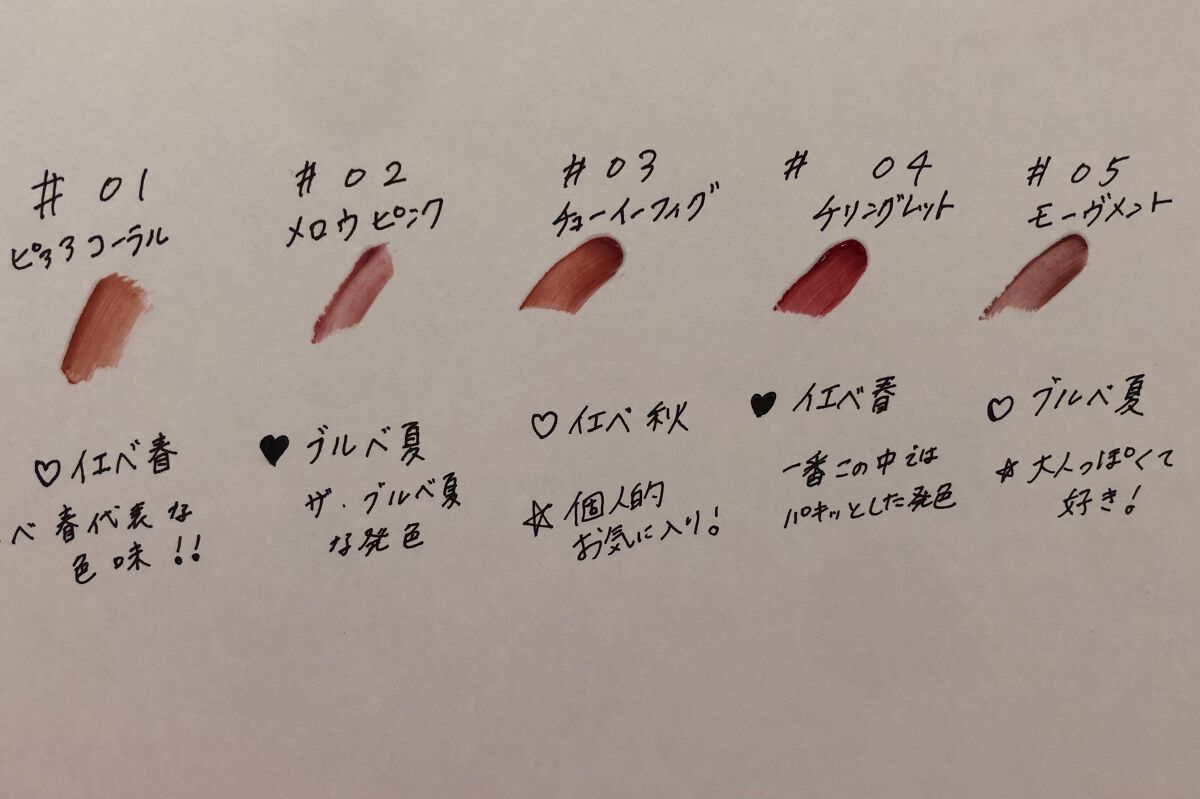 # 01
ピヨヨコーラル
♡イエベ春
ベ春代表な
色味!!
# 02
メロウピンク
♥ブルベ夏
ザ・ブルベ夏
な発色
# 03
チューイーフィグ
♡イエベ秋
☆個人的
お気に入り!
# 04
チリングレット
♥イエベ春
一番この中では
パキッとした発色
# 05
モーヴメント
♡ブルベ夏
☆大人っぽくて
好き!